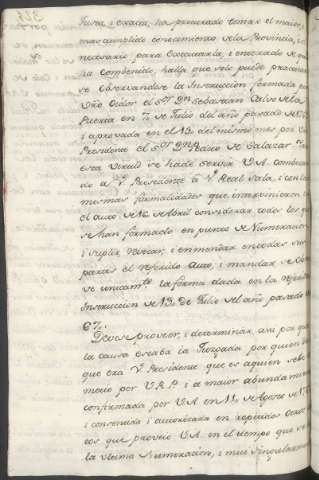 justa, i exacta, ha procurado tomar el maior, i
mas cumplido conocimiento de la Provincia, i
necesario para executarla, i enterado de que
la comprende, halla que solo puede practicarse
se observandose la Instruccion formada por
Vro Oidor el Sor. Dn. Sebastian Calvo de la
Puerta en 11 de Julio del año pasado de
i aprovada en el 13 del mismo mes por Vro
Presidente el Sor. Dn. Pedro de Salazar
esta virtud se ha de servir V.A. combocan-
do a V. Presidente à V. Real Sala, i con las
mismas formalidades que intervinieron en
el auto de 16 de Abril considerar todos los que
se han formado en punto de Numeracion
i suplir, revocar, i enmendar en todas sus
partes el referido Auto, i mandar se obser-
ve unicamte. la forma dada en la referida
Instruccion de 13 de Julio del año pasado de
67.
Deve se proveer, i determinar, asi por que
la causa estaba ia Juzgada por quien
que era V. Presidente que es aquien se co-
metio por V.R.P. i a maior abundamiento
confirmada por V.A. en 11 de Agosto de
i consentida i autorizada en repetidos Decre-
tos que proveio V.A. en el tiempo que
la ultima Numeracion, i mui singularmente